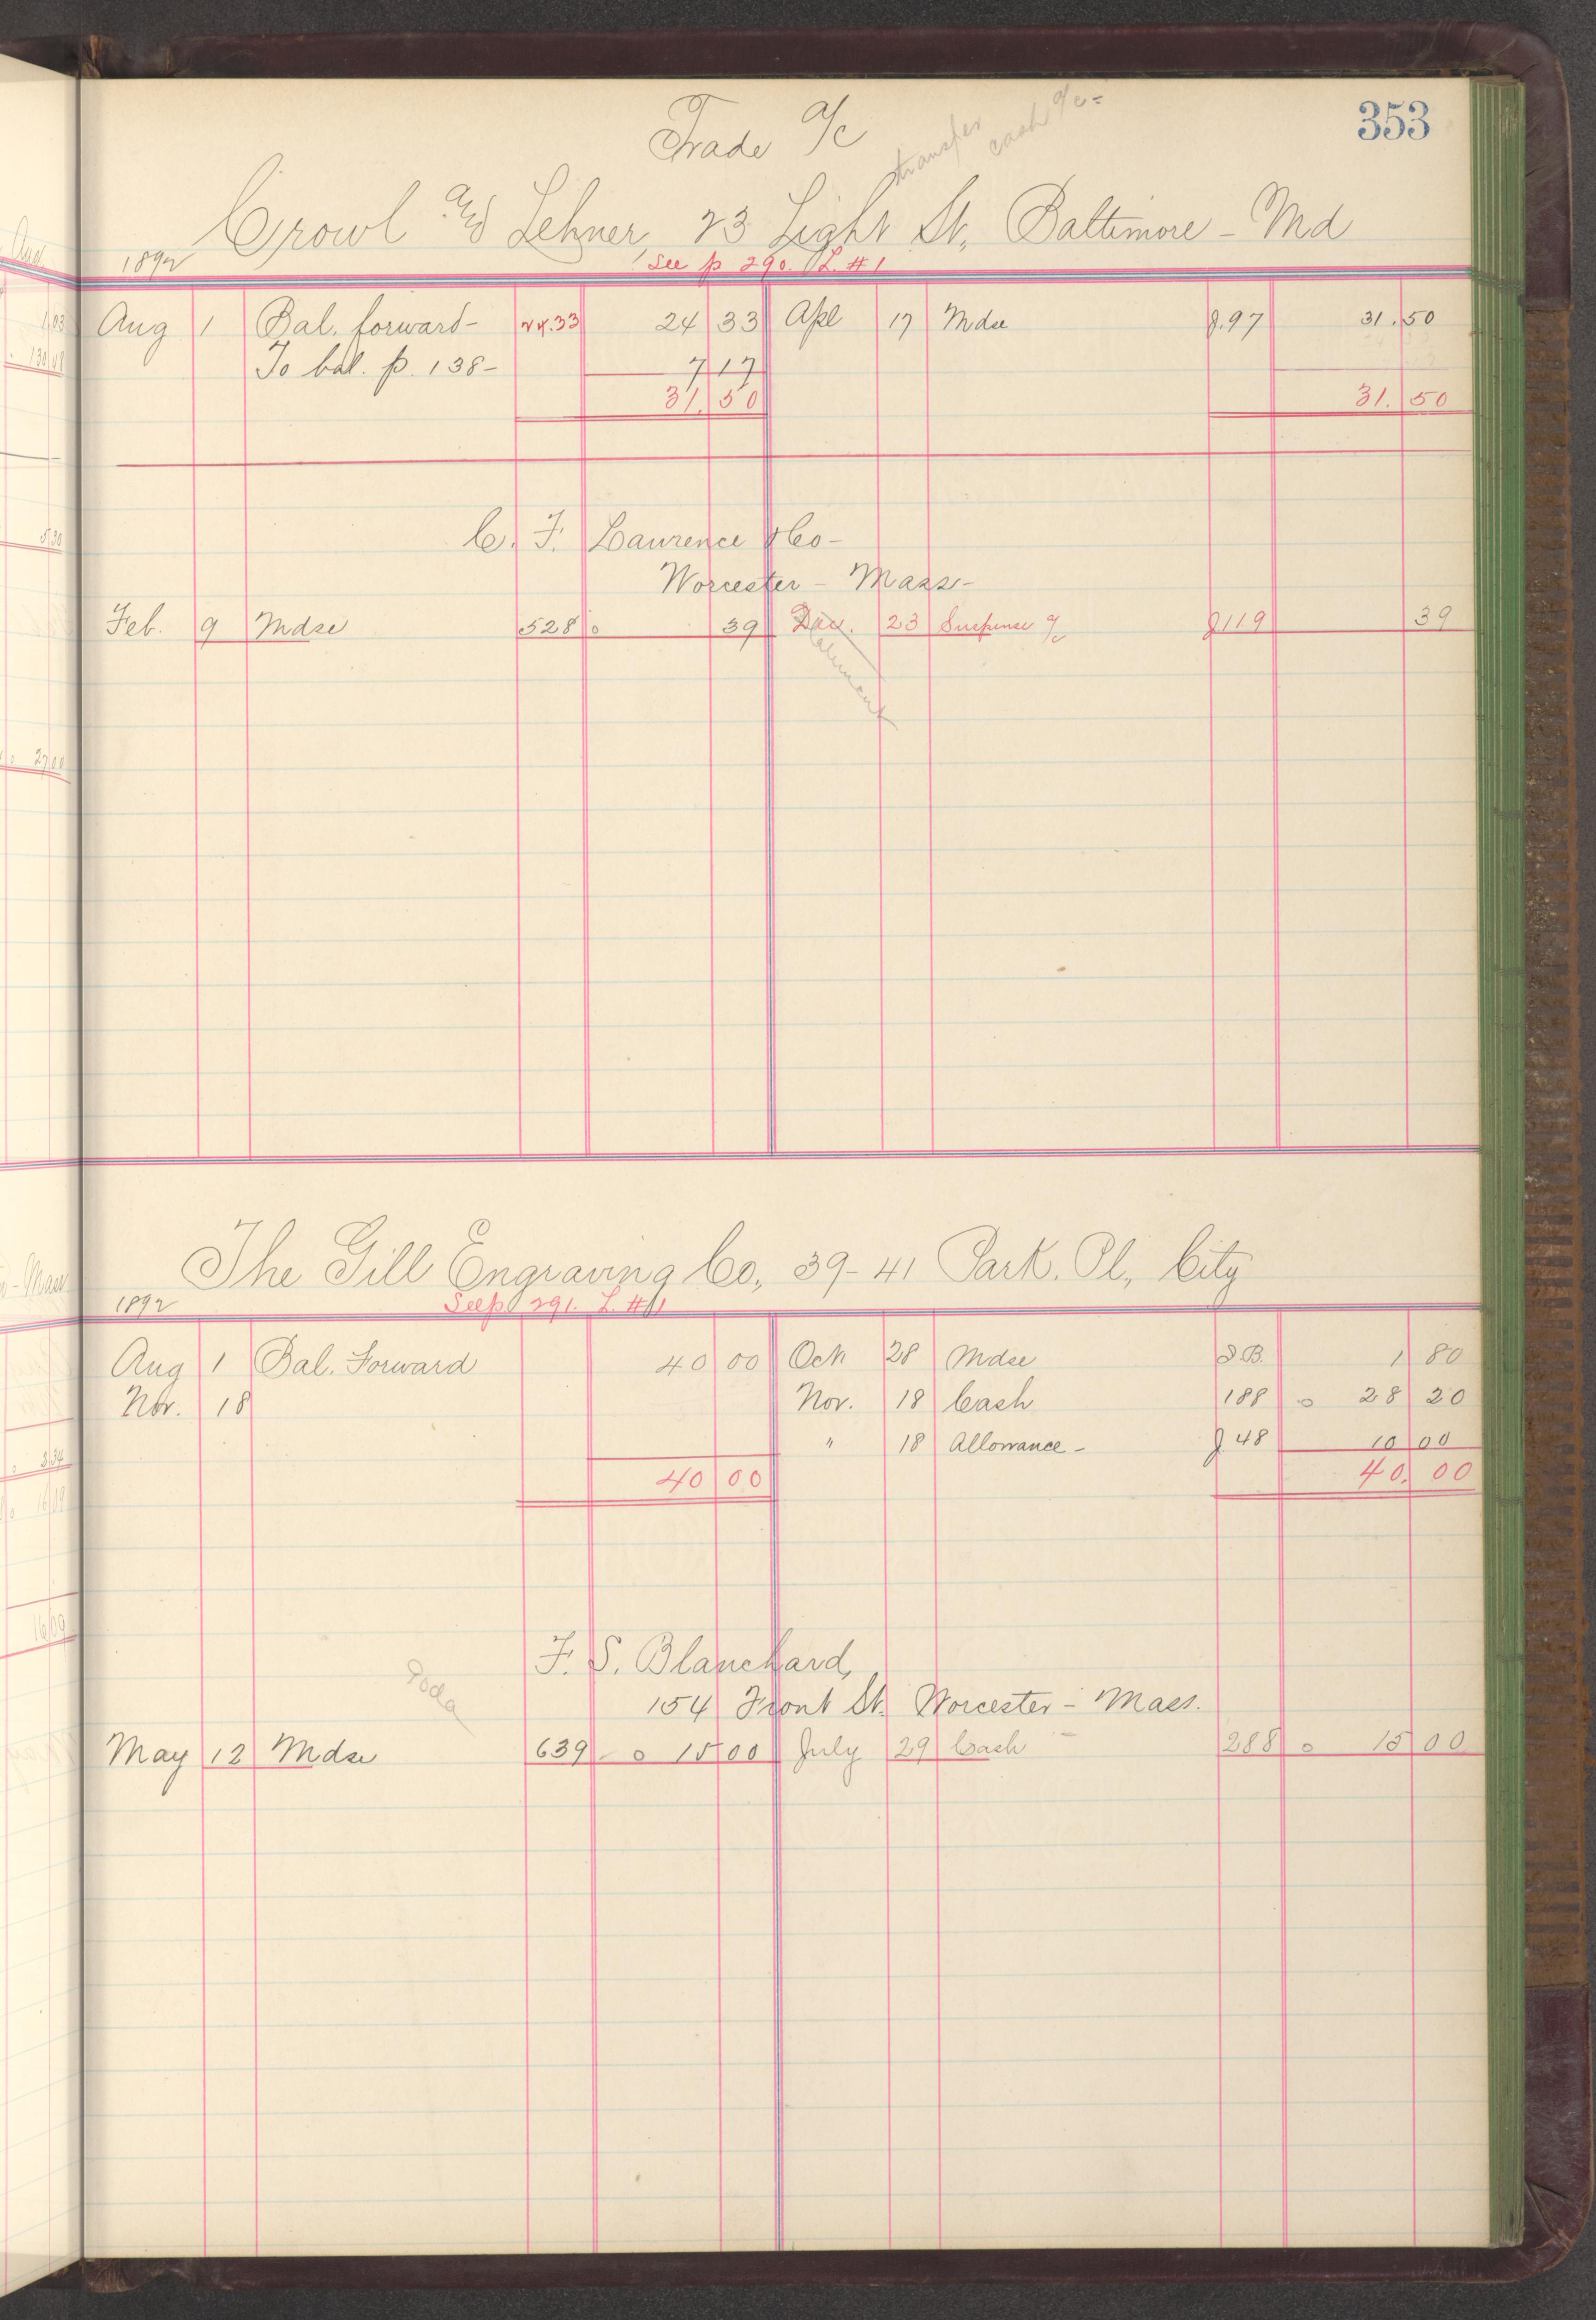 353
Trade a/c
transfer cash a/c =
Crowl and Lehner, 23 Light St, Baltimore - Md
1892 See p 290. L. #1
Aug 1 Bal. forward- 24.33 24 33 Apl 17 Mdse J.97 31.50
To bal. p. 138- 7 17
31.50 31.50
C. F. Laurence & Co-
Worcester - Mass-
Feb. 9 Mdse 528 o 39 Dec. 23 Suspense a/c J119 39
The Gill Engraving Co, 39-41 Park. Pl, City
1892 See p 291. L. #1
Aug 1 Bal. Forward 40 00 Oct 28 Mdse 1 80
Nov. 18 Nov. 18 Cash 188 o 28 20
" 18 Allowance - J 48 10 00
40 00 40. 00
F. S. Blanchard,
154 Front St. Worcester - Mass.
May 12 Mdse 639 - o 15 00 July 29 Cash 288 o 15 00